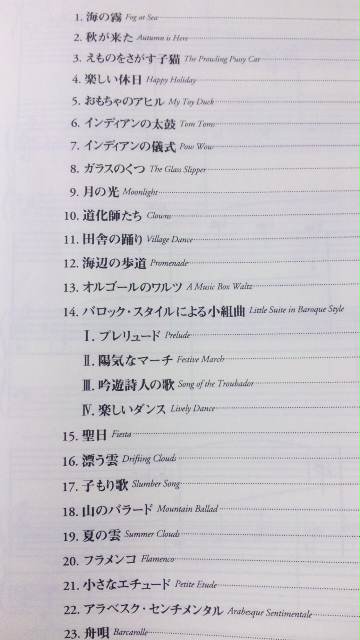 1. 海の霧 Fog at Sea
2. 秋が来た Autumn is Here
3. えものをさがす子猫 The Prowling Pussy Cat
4. 楽しい休日 Happy Holiday
5. おもちゃのアヒル My Toy Duck
6. インディアンの太鼓 Tom Toms
7. インディアンの儀式 Pow Wow
8. ガラスのくつ The Glass Slipper
9. 月の光 Moonlight
10. 道化師たち Clowns
11. 田舎の踊り Village Dance
12. 海辺の歩道 Promenade
13. オルゴールのワルツ A Music Box Waltz
14. バロック・スタイルによる小組曲 Little Suite in Baroque Style
Ⅰ. プレリュード Prelude
Ⅱ. 陽気なマーチ Festive March
Ⅲ. 吟遊詩人の歌 Song of the Troubador
Ⅳ. 楽しいダンス Lively Dance
15. 聖日 Fiesta
16. 漂う雲 Drifting Clouds
17. 子もり歌 Slumber Song
18. 山のバラード Mountain Ballad
19. 夏の雲 Summer Clouds
20. フラメンコ Flamenco
21. 小さなエチュード Petite Etude
22. アラベスク・センチメンタル Arabesque Sentimentale
23. 舟唄 Barcarolle